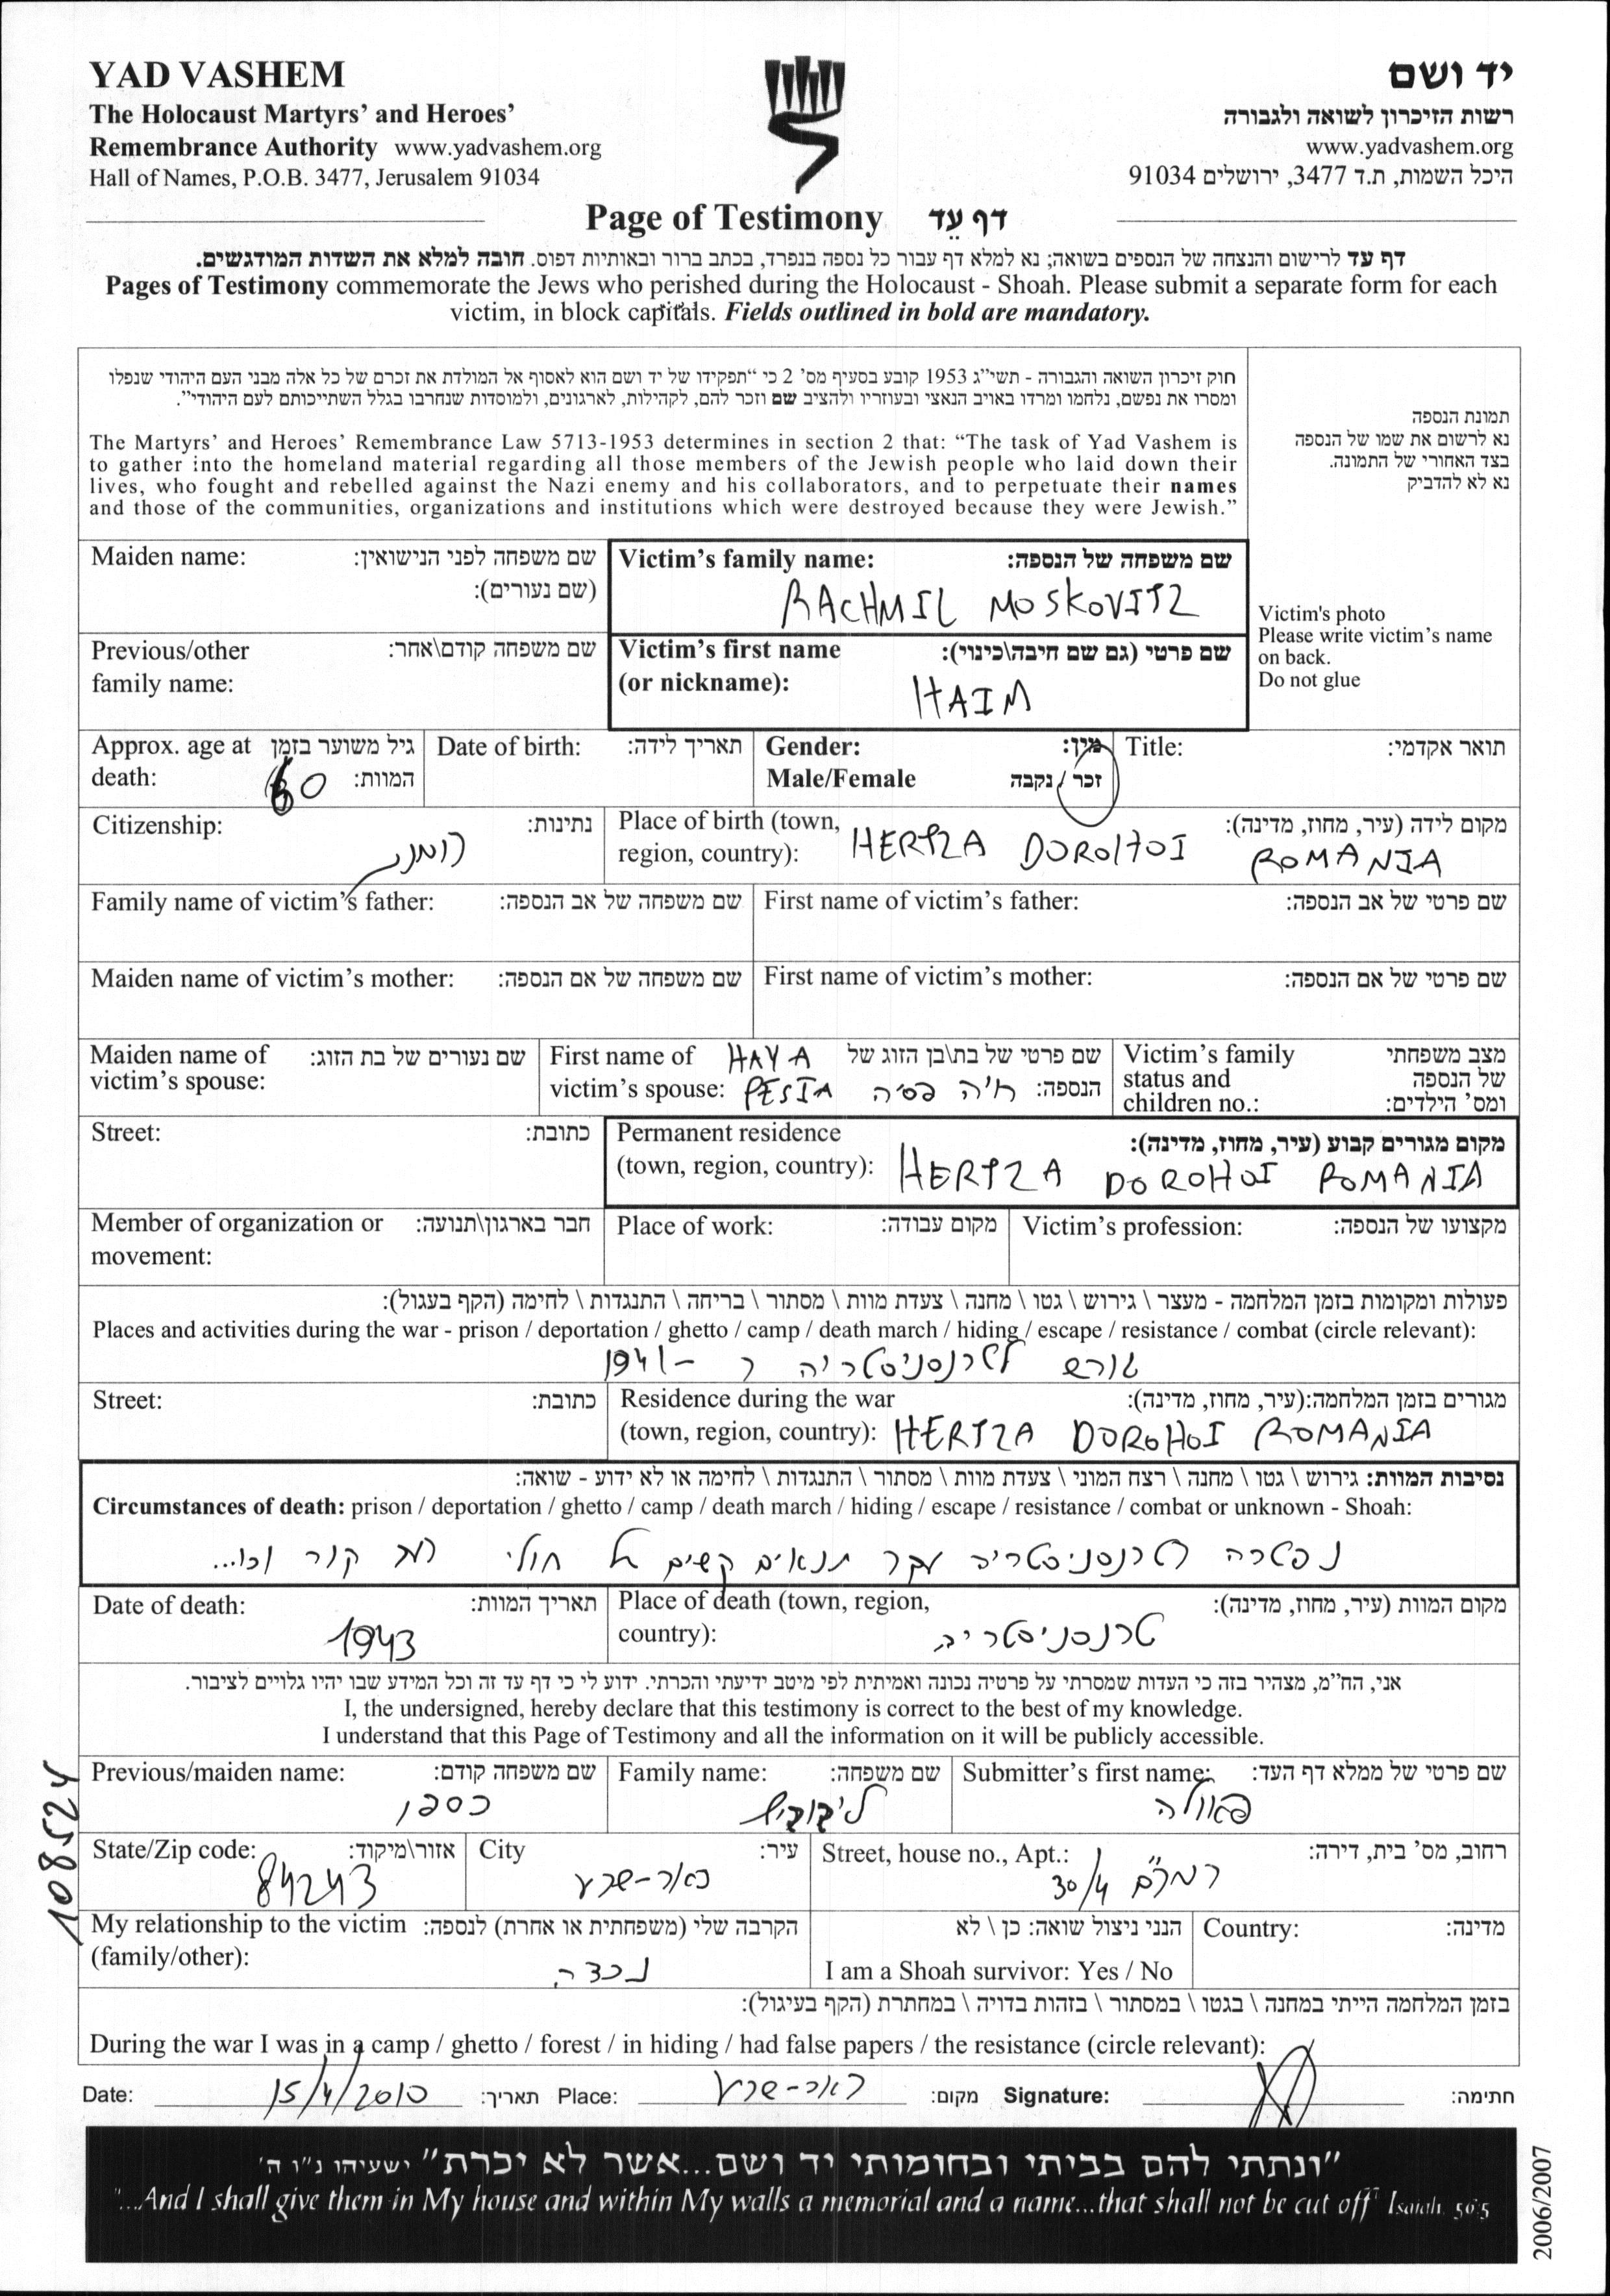 YAD VASHEM
The Holocaust Martyrs' and Heroes'
Remembrance Authority www.yadvashem.org
Hall of Names, P.O.B. 3477, Jerusalem 91034
יד ושם
רשות הזיכרון לשואה ולגבורה
www.yadvashem.org
היכל השמות, ת.ד 3477, ירושלים 91034
Page of Testimony דף עֵד
דף עד לרישום והנצחה של הנספים בשואה; נא למלא דף עבור כל נספה בנפרד, בכתב ברור ובאותיות דפוס. חובה למלא את השדות המודגשים.
Pages of Testimony commemorate the Jews who perished during the Holocaust - Shoah. Please submit a separate form for each
victim, in block capitals. Fields outlined in bold are mandatory.
חוק זיכרון השואה והגבורה - תשי"ג 1953 קובע בסעיף מס' 2 כי "תפקידו של יד ושם הוא לאסוף אל המולדת את זכרם של כל אלה מבני העם היהודי שנפלו
ומסרו את נפשם, נלחמו ומרדו באויב הנאצי ובעוזריו ולהציב שם וזכר להם, לקהילות, לארגונים, ולמוסדות שנחרבו בגלל השתייכותם לעם היהודי".
The Martyrs' and Heroes' Remembrance Law 5713-1953 determines in section 2 that: "The task of Yad Vashem is
to gather into the homeland material regarding all those members of the Jewish people who laid down their
lives, who fought and rebelled against the Nazi enemy and his collaborators, and to perpetuate their names
and those of the communities, organizations and institutions which were destroyed because they were Jewish."
תמונת הנספה
נא לרשום את שמו של הנספה
בצד האחורי של התמונה.
נא לא להדביק
Victim's photo
Please write victim's name
on back.
Do not glue
Maiden name: שם משפחה לפני הנישואין:
(שם נעורים):
Victim's family name: שם משפחה של הנספה:
RACHMIL MOSKOVITZ
Previous/other שם משפחה קודם\אחר:
family name:
Victim's first name שם פרטי (גם שם חיבה\כינוי):
(or nickname): HAIM
Approx. age at גיל משוער בזמן
death: 60 המוות:
Date of birth: תאריך לידה:
Gender: מין:
Male/Female זכר / נקבה
Title: תואר אקדמי:
Citizenship: נתינות:
Place of birth (town, מקום לידה (עיר, מחוז, מדינה):
region, country): HERTZA DOROHOI ROMANIA
Family name of victim's father: שם משפחה של אב הנספה:
First name of victim's father: שם פרטי של אב הנספה:
Maiden name of victim's mother: שם משפחה של אם הנספה:
First name of victim's mother: שם פרטי של אם הנספה:
Maiden name of שם נעורים של בת הזוג:
victim's spouse:
First name of HAYA שם פרטי של בת\בן הזוג של
victim's spouse: PESIA חיה פסיה הנספה:
Victim's family מצב משפחתי
status and של הנספה
children no.: ומס' הילדים:
Street: כתובת:
Permanent residence מקום מגורים קבוע (עיר, מחוז, מדינה):
(town, region, country): HERTZA DOROHOI ROMANIA
Member of organization or חבר בארגון\תנועה:
movement:
Place of work: מקום עבודה:
Victim's profession: מקצועו של הנספה:
פעולות ומקומות בזמן המלחמה - מעצר \ גירוש \ גטו \ מחנה \ צעדת מוות \ מסתור \ בריחה \ התנגדות \ לחימה (הקף בעגול):
Places and activities during the war - prison / deportation / ghetto / camp / death march / hiding / escape / resistance / combat (circle relevant):
גורש לטרנסניסטריה ב - 1941
Street: כתובת:
Residence during the war מגורים בזמן המלחמה:(עיר, מחוז, מדינה):
(town, region, country): HERTZA DOROHOI ROMANIA
נסיבות המוות: גירוש \ גטו \ מחנה \ רצח המוני \ צעדת מוות \ מסתור \ התנגדות \ לחימה או לא ידוע - שואה:
Circumstances of death: prison / deportation / ghetto / camp / death march / hiding / escape / resistance / combat or unknown - Shoah:
תנאים קשים חולי קור וכו...
Date of death: תאריך המוות:
1943
Place of death (town, region, מקום המוות (עיר, מחוז, מדינה):
country): טרנסניסטריה
אני, הח"מ, מצהיר בזה כי העדות שמסרתי על פרטיה נכונה ואמיתית לפי מיטב ידיעתי והכרתי. ידוע לי כי דף עד זה וכל המידע שבו יהיו גלויים לציבור.
I, the undersigned, hereby declare that this testimony is correct to the best of my knowledge.
I understand that this Page of Testimony and all the information on it will be publicly accessible.
Previous/maiden name: שם משפחה קודם:
כספן
Family name: שם משפחה:
ליבוביץ
Submitter's first name: שם פרטי של ממלא דף העד:
פאולה
State/Zip code: אזור\מיקוד:
84243
City עיר:
באר-שבע
Street, house no., Apt.: רחוב, מס' בית, דירה:
רמב"ם 30/4
My relationship to the victim הקרבה שלי (משפחתית או אחרת) לנספה:
(family/other): נכדה
הנני ניצול שואה: כן \ לא
I am a Shoah survivor: Yes / No
Country: מדינה:
בזמן המלחמה הייתי במחנה \ בגטו \ במסתור \ בזהות בדויה \ במחתרת (הקף בעיגול):
During the war I was in a camp / ghetto / forest / in hiding / had false papers / the resistance (circle relevant):
Date: 15/4/2010 תאריך: Place: באר-שבע מקום: Signature: חתימה:
"ונתתי להם בביתי ובחומותי יד ושם...אשר לא יכרת" ישעיהו נ"ו ה'
"...And I shall give them in My house and within My walls a memorial and a name...that shall not be cut off" Isaiah, 56:5
108524
2006/2007